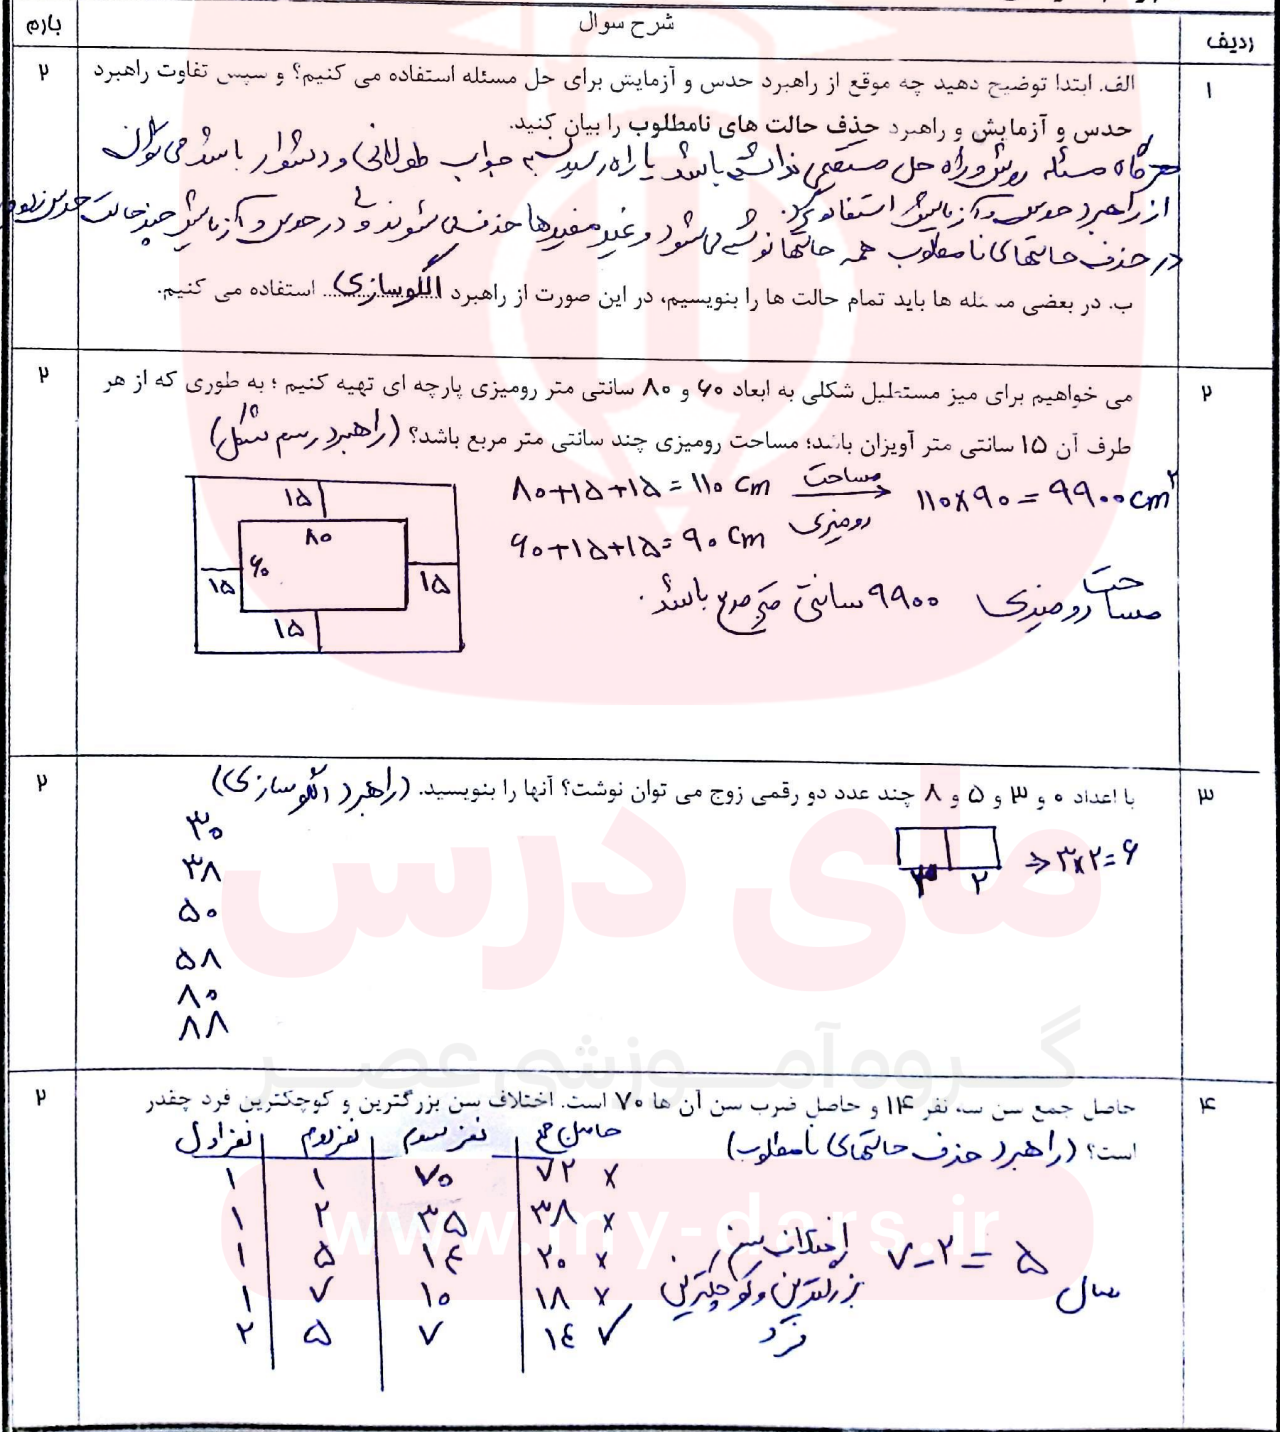 ردیف شرح سوال بارم
۱ الف. ابتدا توضیح دهید چه موقع از راهبرد حدس و آزمایش برای حل مسئله استفاده می کنیم؟ و سپس تفاوت راهبرد ۲
حدس و آزمایش و راهبرد حذف حالت های نامطلوب را بیان کنید.
هرگاه مسئله روش و راه حل مستقیمی نداشته باشد یا راه رسیدن به جواب طولانی و دشوار باشد می توان
از راهبرد حدس و آزمایش استفاده کرد.
در حذف حالتهای نامطلوب همه حالتها نوشته می شود و غیر مفیدها حذف می شوند ولی در حدس و آزمایش چند حالت حدس زده
ب. در بعضی مسئله ها باید تمام حالت ها را بنویسیم، در این صورت از راهبرد الگوسازی استفاده می کنیم.
۲ می خواهیم برای میز مستطیل شکلی به ابعاد ۶۰ و ۸۰ سانتی متر رومیزی پارچه ای تهیه کنیم ؛ به طوری که از هر ۲
طرف آن ۱۵ سانتی متر آویزان باشد؛ مساحت رومیزی چند سانتی متر مربع باشد؟ (راهبرد رسم شکل)
۸۰+۱۵+۱۵=۱۱۰ cm مساحت رومیزی ۱۱۰×۹۰=۹۹۰۰cm²
۶۰+۱۵+۱۵=۹۰ cm
مساحت رومیزی ۹۹۰۰ سانتی متر مربع باشد.
۱۵
۸۰
۶۰
۱۵ ۱۵
۱۵
۳ با اعداد ۰ و ۳ و ۵ و ۸ چند عدد دو رقمی زوج می توان نوشت؟ آنها را بنویسید. (راهبرد الگوسازی) ۲
۳ ۲ ⇒ ۳×۲=۶
۳۰
۳۸
۵۰
۵۸
۸۰
۸۸
مای درس
گروه آموزشی عصر
۴ حاصل جمع سن سه نفر ۱۴ و حاصل ضرب سن آن ها ۷۰ است. اختلاف سن بزرگترین و کوچکترین فرد چقدر ۲
است؟ (راهبرد حذف حالتهای نامطلوب)
نفر اول نفر دوم نفر سوم حاصل جمع
۱ ۱ ۷۰ ۷۲ ×
۱ ۲ ۳۵ ۳۸ ×
۱ ۵ ۱۴ ۲۰ ×
۱ ۷ ۱۰ ۱۸ ×
۲ ۵ ۷ ۱۴ ✓
اختلاف سن بزرگترین و کوچکترین فرد
۷-۲=۵ سال
www.my-dars.ir